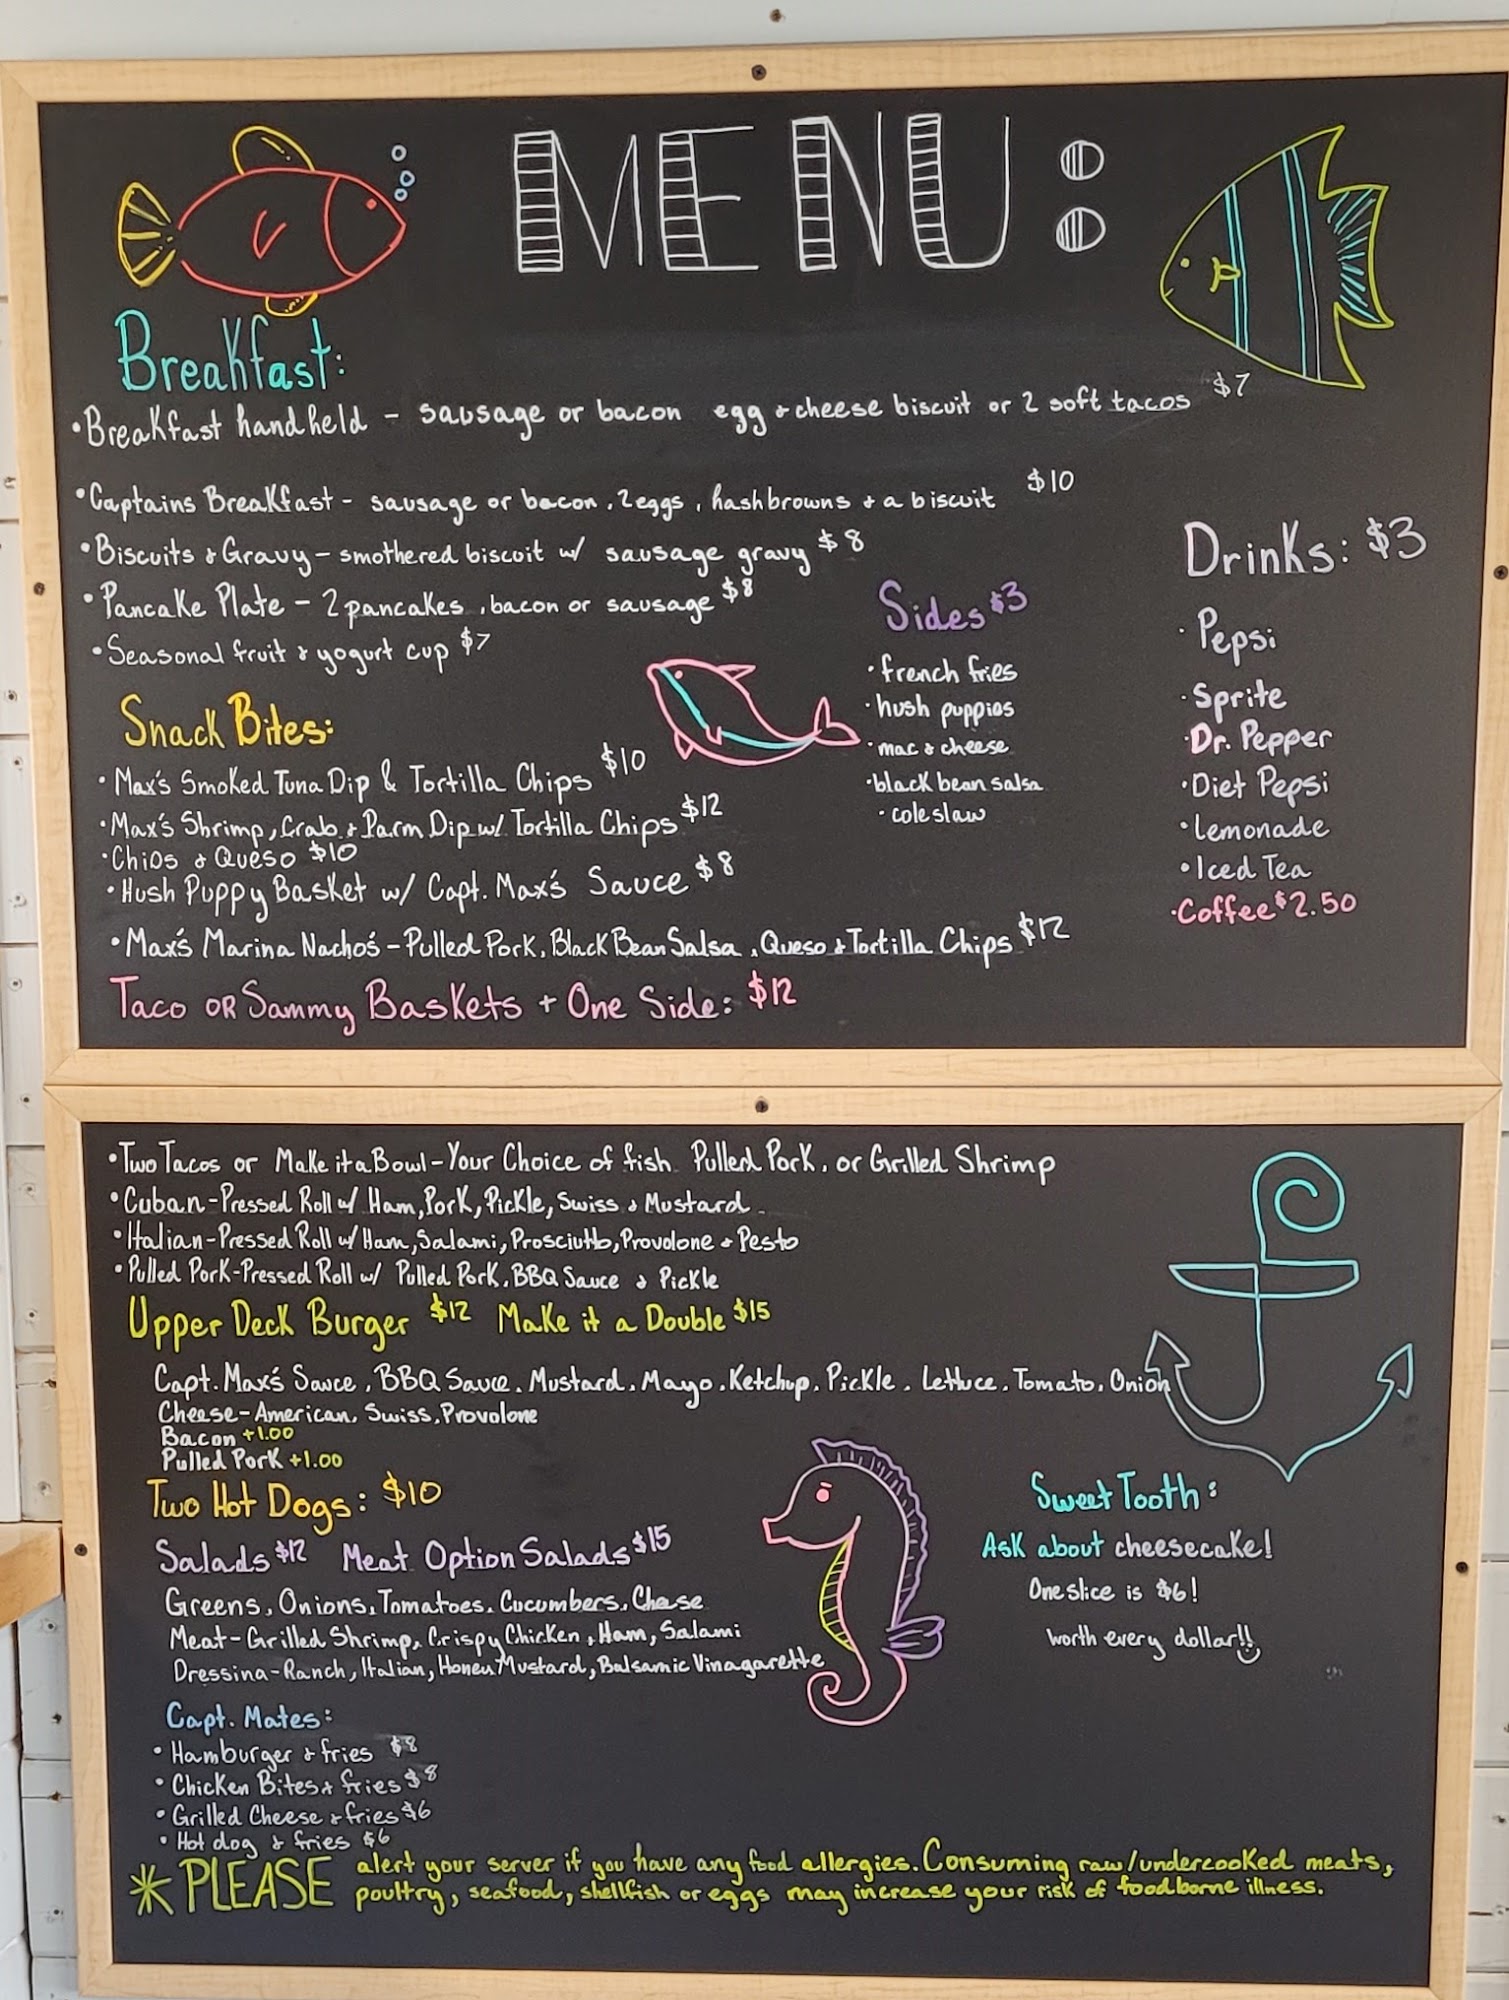 MENU:
Breakfast:
•Breakfast handheld - sausage or bacon egg & cheese biscuit or 2 soft tacos $7
•Captains Breakfast - sausage or bacon, 2 eggs, hashbrowns & a biscuit $10
•Biscuits & Gravy - smothered biscuit w/ sausage gravy $8
•Pancake Plate - 2 pancakes, bacon or sausage $8
•Seasonal fruit & yogurt cup $7
Snack Bites:
•Max's Smoked Tuna Dip & Tortilla Chips $10
•Max's Shrimp, Crab & Parm Dip w/ Tortilla Chips $12
•Chips & Queso $10
•Hush Puppy Basket w/ Capt. Max's Sauce $8
•Max's Marina Nacho's - Pulled Pork, Black Bean Salsa, Queso & Tortilla Chips $12
Sides $3
•french fries
•hush puppies
•mac & cheese
•black bean salsa
•coleslaw
Drinks: $3
•Pepsi
•Sprite
•Dr. Pepper
•Diet Pepsi
•Lemonade
•Iced Tea
•Coffee $2.50
Taco or Sammy Baskets + One Side: $12
•Two Tacos or Make it a Bowl - Your Choice of fish Pulled Pork, or Grilled Shrimp
•Cuban-Pressed Roll w/ Ham, Pork, Pickle, Swiss & Mustard
•Italian-Pressed Roll w/ Ham, Salami, Prosciutto, Provolone & Pesto
•Pulled Pork-Pressed Roll w/ Pulled Pork, BBQ Sauce & Pickle
Upper Deck Burger $12 Make it a Double $15
Capt. Max's Sauce, BBQ Sauce, Mustard, Mayo, Ketchup, Pickle, Lettuce, Tomato, Onion
Cheese-American, Swiss, Provolone
Bacon +1.00
Pulled Pork +1.00
Two Hot Dogs: $10
Salads $12 Meat Option Salads $15
Greens, Onions, Tomatoes, Cucumbers, Cheese
Meat-Grilled Shrimp, Crispy Chicken, Ham, Salami
Dressing-Ranch, Italian, Honey Mustard, Balsamic Vinagarette
Sweet Tooth:
Ask about cheesecake!
One slice is $6!
worth every dollar!!
Capt. Mates:
•Hamburger & fries $8
•Chicken Bites & fries $8
•Grilled Cheese & fries $6
•Hot dog & fries $6
*PLEASE alert your server if you have any food allergies. Consuming raw/undercooked meats,
poultry, seafood, shellfish or eggs may increase your risk of foodborne illness.